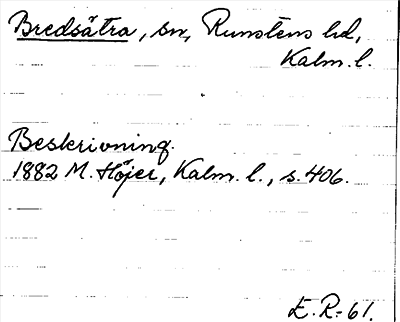 Bredsätra, sn, Runstens hd,
Kalm. l.
Beskrivning.
1882 M. Höjer, Kalm. l., s. 406.
E. R-61.